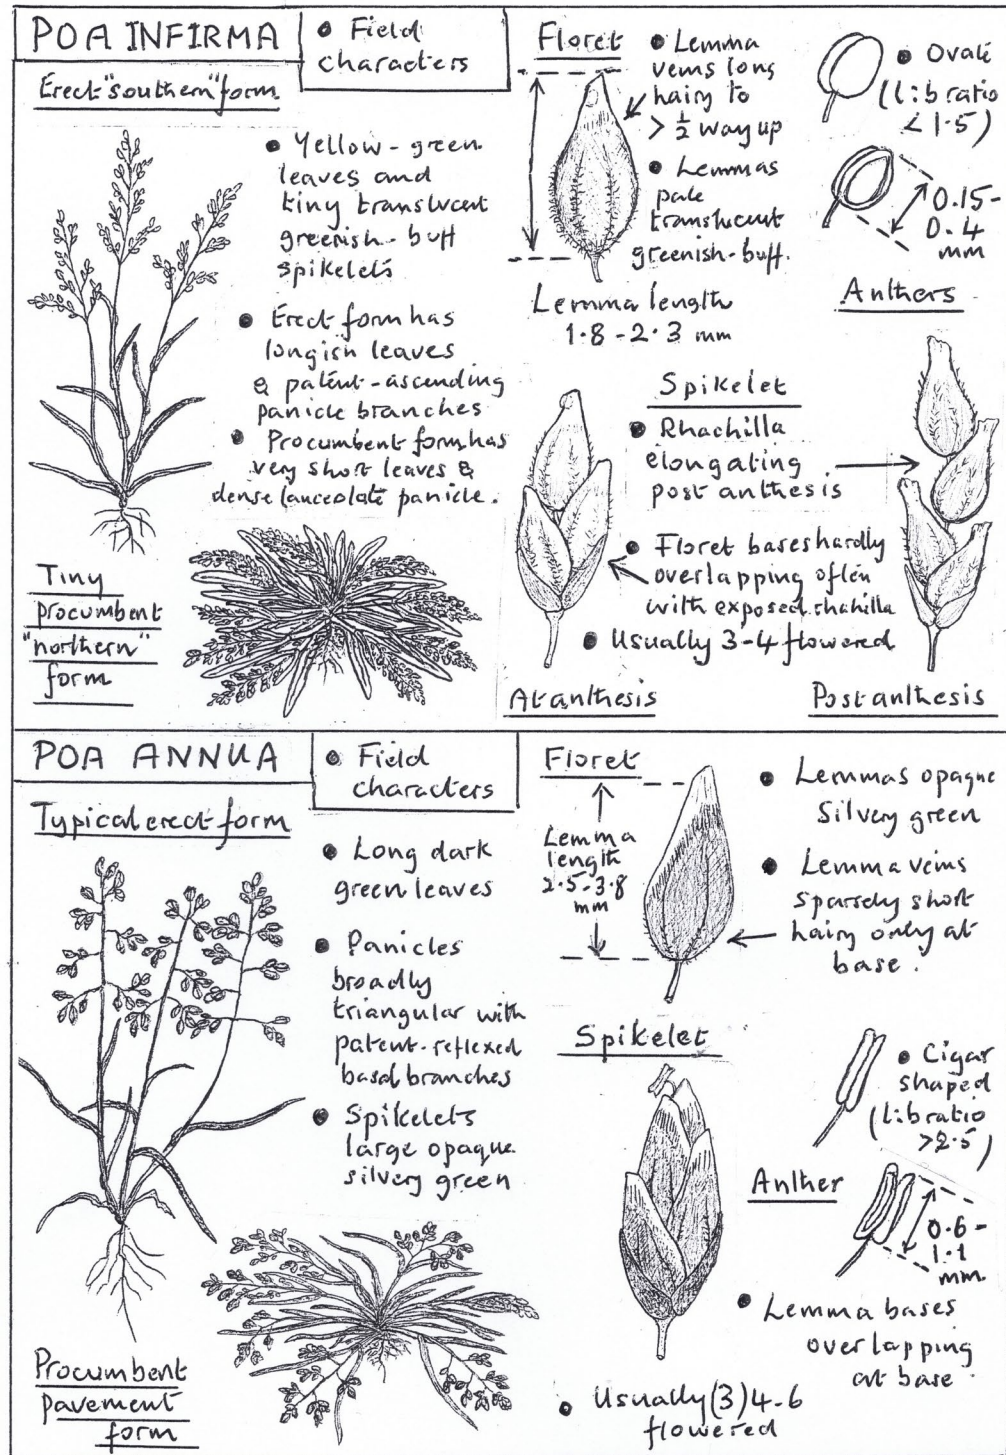 POA INFIRMA
• Field
characters
Erect "southern" form
• Yellow-green
leaves and
tiny translucent
greenish-buff
spikelets
• Erect form has
longish leaves
& patent-ascending
panicle branches
• Procumbent form has
very short leaves &
dense lanceolate panicle.
Tiny
procumbent
"northern"
form
Floret
• Lemma
veins long
hairy to
> 1/2 way up
• Lemmas
pale
translucent
greenish-buff.
Lemma length
1.8-2.3 mm
• Ovate
(l:b ratio
< 1.5)
0.15-
0.4
mm
Anthers
Spikelet
• Rhachilla
elongating
post anthesis
• Floret bases hardly
overlapping often
with exposed rhahilla
• Usually 3-4 flowered
At anthesis
Post anthesis
POA ANNUA
• Field
characters
Typical erect form
• Long dark
green leaves
• Panicles
broadly
triangular with
patent-reflexed
basal branches
• Spikelets
large opaque
silvery green
Procumbent
pavement
form
Floret
Lemma
length
2.5-3.8
mm
• Lemmas opaque
Silvery green
• Lemma veins
sparsely short
hairy only at
base.
Spikelet
• Cigar
shaped
(l:b ratio
>2.5)
Anther
0.6-
1.1
mm.
• Lemma bases
overlapping
at base.
• Usually (3) 4-6
flowered